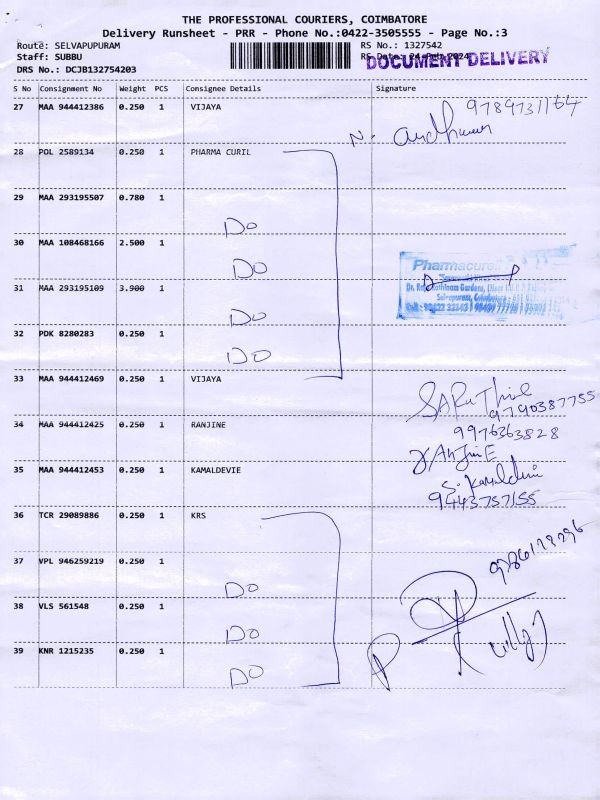 THE PROFESSIONAL COURIERS, COIMBATORE
Delivery Runsheet - PRR - Phone No.:0422-3505555 - Page No.:3
Route: SELVAPUPURAM RS No.: 1327542
Staff: SUBBU
DOCUMENT DELIVERY
DRS No.: DCJB132754203
S No Consignment No Weight PCS Consignee Details Signature
27 MAA 944412386 0.250 1 VIJAYA 9789731164
28 POL 2589134 0.250 1 PHARMA CURIL
29 MAA 293195507 0.780 1
Do
30 MAA 108468166 2.500 1
Do
Pharmacure
31 MAA 293195109 3.900 1
Do
32 PDK 8280283 0.250 1
Do
33 MAA 944412469 0.250 1 VIJAYA
9790387755
34 MAA 944412425 0.250 1 RANJINE 9976363828
35 MAA 944412453 0.250 1 KAMALDEVIE
9443757155
36 TCR 29089886 0.250 1 KRS
37 VPL 946259219 0.250 1
Do
38 VLS 561548 0.250 1
Do
39 KNR 1215235 0.250 1
Do